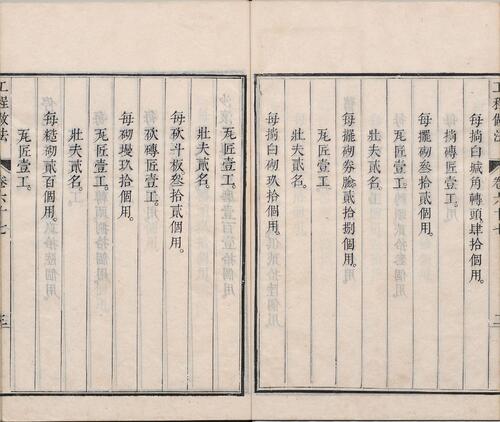 每搧白城角轉頭肆拾個用。
每搧磚匠壹工。
每擺砌叁拾貳個用。
瓦匠壹工。
壯夫貳名。
每擺砌券臉貳拾捌個用。
瓦匠壹工。
壯夫貳名。
每搧白砌貳拾個用。
工程做法
卷六十七
二
瓦匠壹工。
壯夫貳名。
每砍斗板叁拾貳個用。
每砍磚匠壹工。
每砌墁玖拾個用。
瓦匠壹工。
壯夫貳名。
每糙砌貳百個用。
瓦匠壹工。
工程做法
卷六十七
三